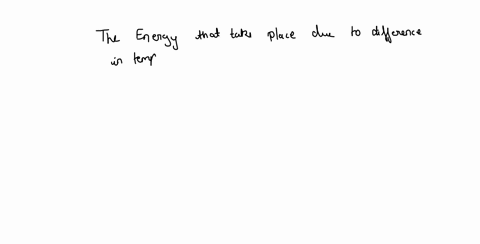 The Energy that take place due to difference
in temp